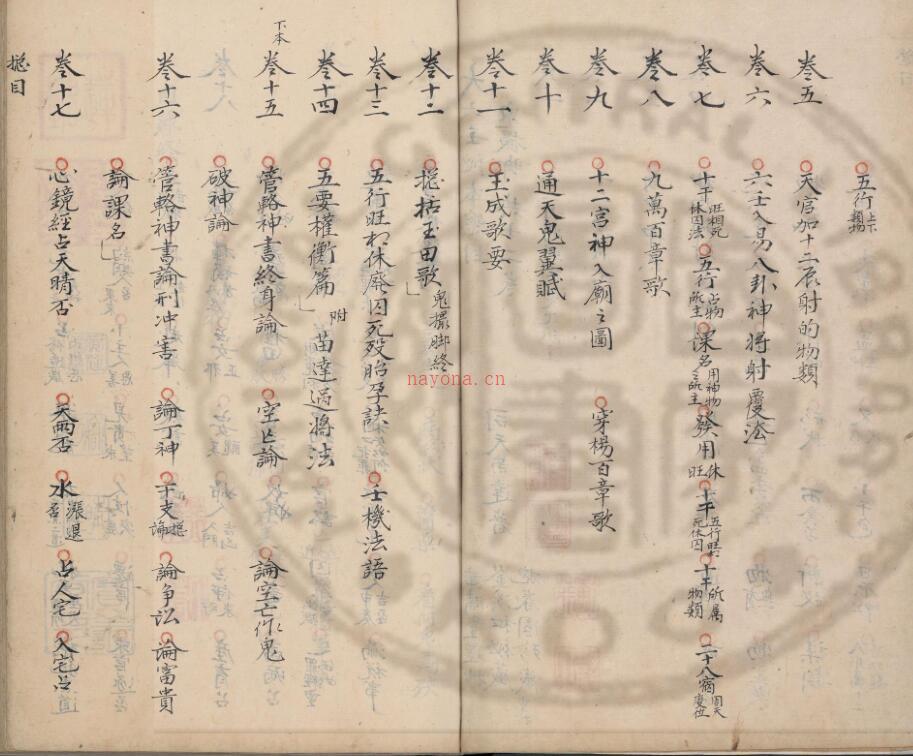 五行
卷五 天官加十二辰射的物類
卷六 六壬入易八卦神將射覆法
卷七 十干旺相死休囚法 五行占物所主 課名用神物之所主 發用休旺 十干五行旺死休囚 十干所属物類 二十八宿周天度位
卷八 九萬百章歌
卷九 十二宮神入廟之圖 穿楊百章歌
卷十 通天鬼翼賦
卷十一 玉成歌要
卷十二 揔括玉田歌 鬼撮脚終
卷十三 五行旺相休廢囚死殁胎孕 士機法語
卷十四 五要權衡篇 附 苗達過將法
下本
卷十五 管輅神書終身論 空亡論 論空亡作鬼
破神論
卷十六 管輅神書論刑冲害 論丁神 干支揔論 論爭訟 論富貴
論課名
卷十七 心鏡經占天晴否 天雨否 水漲退否 占人宅 入宅占
揔目
nayona.cn